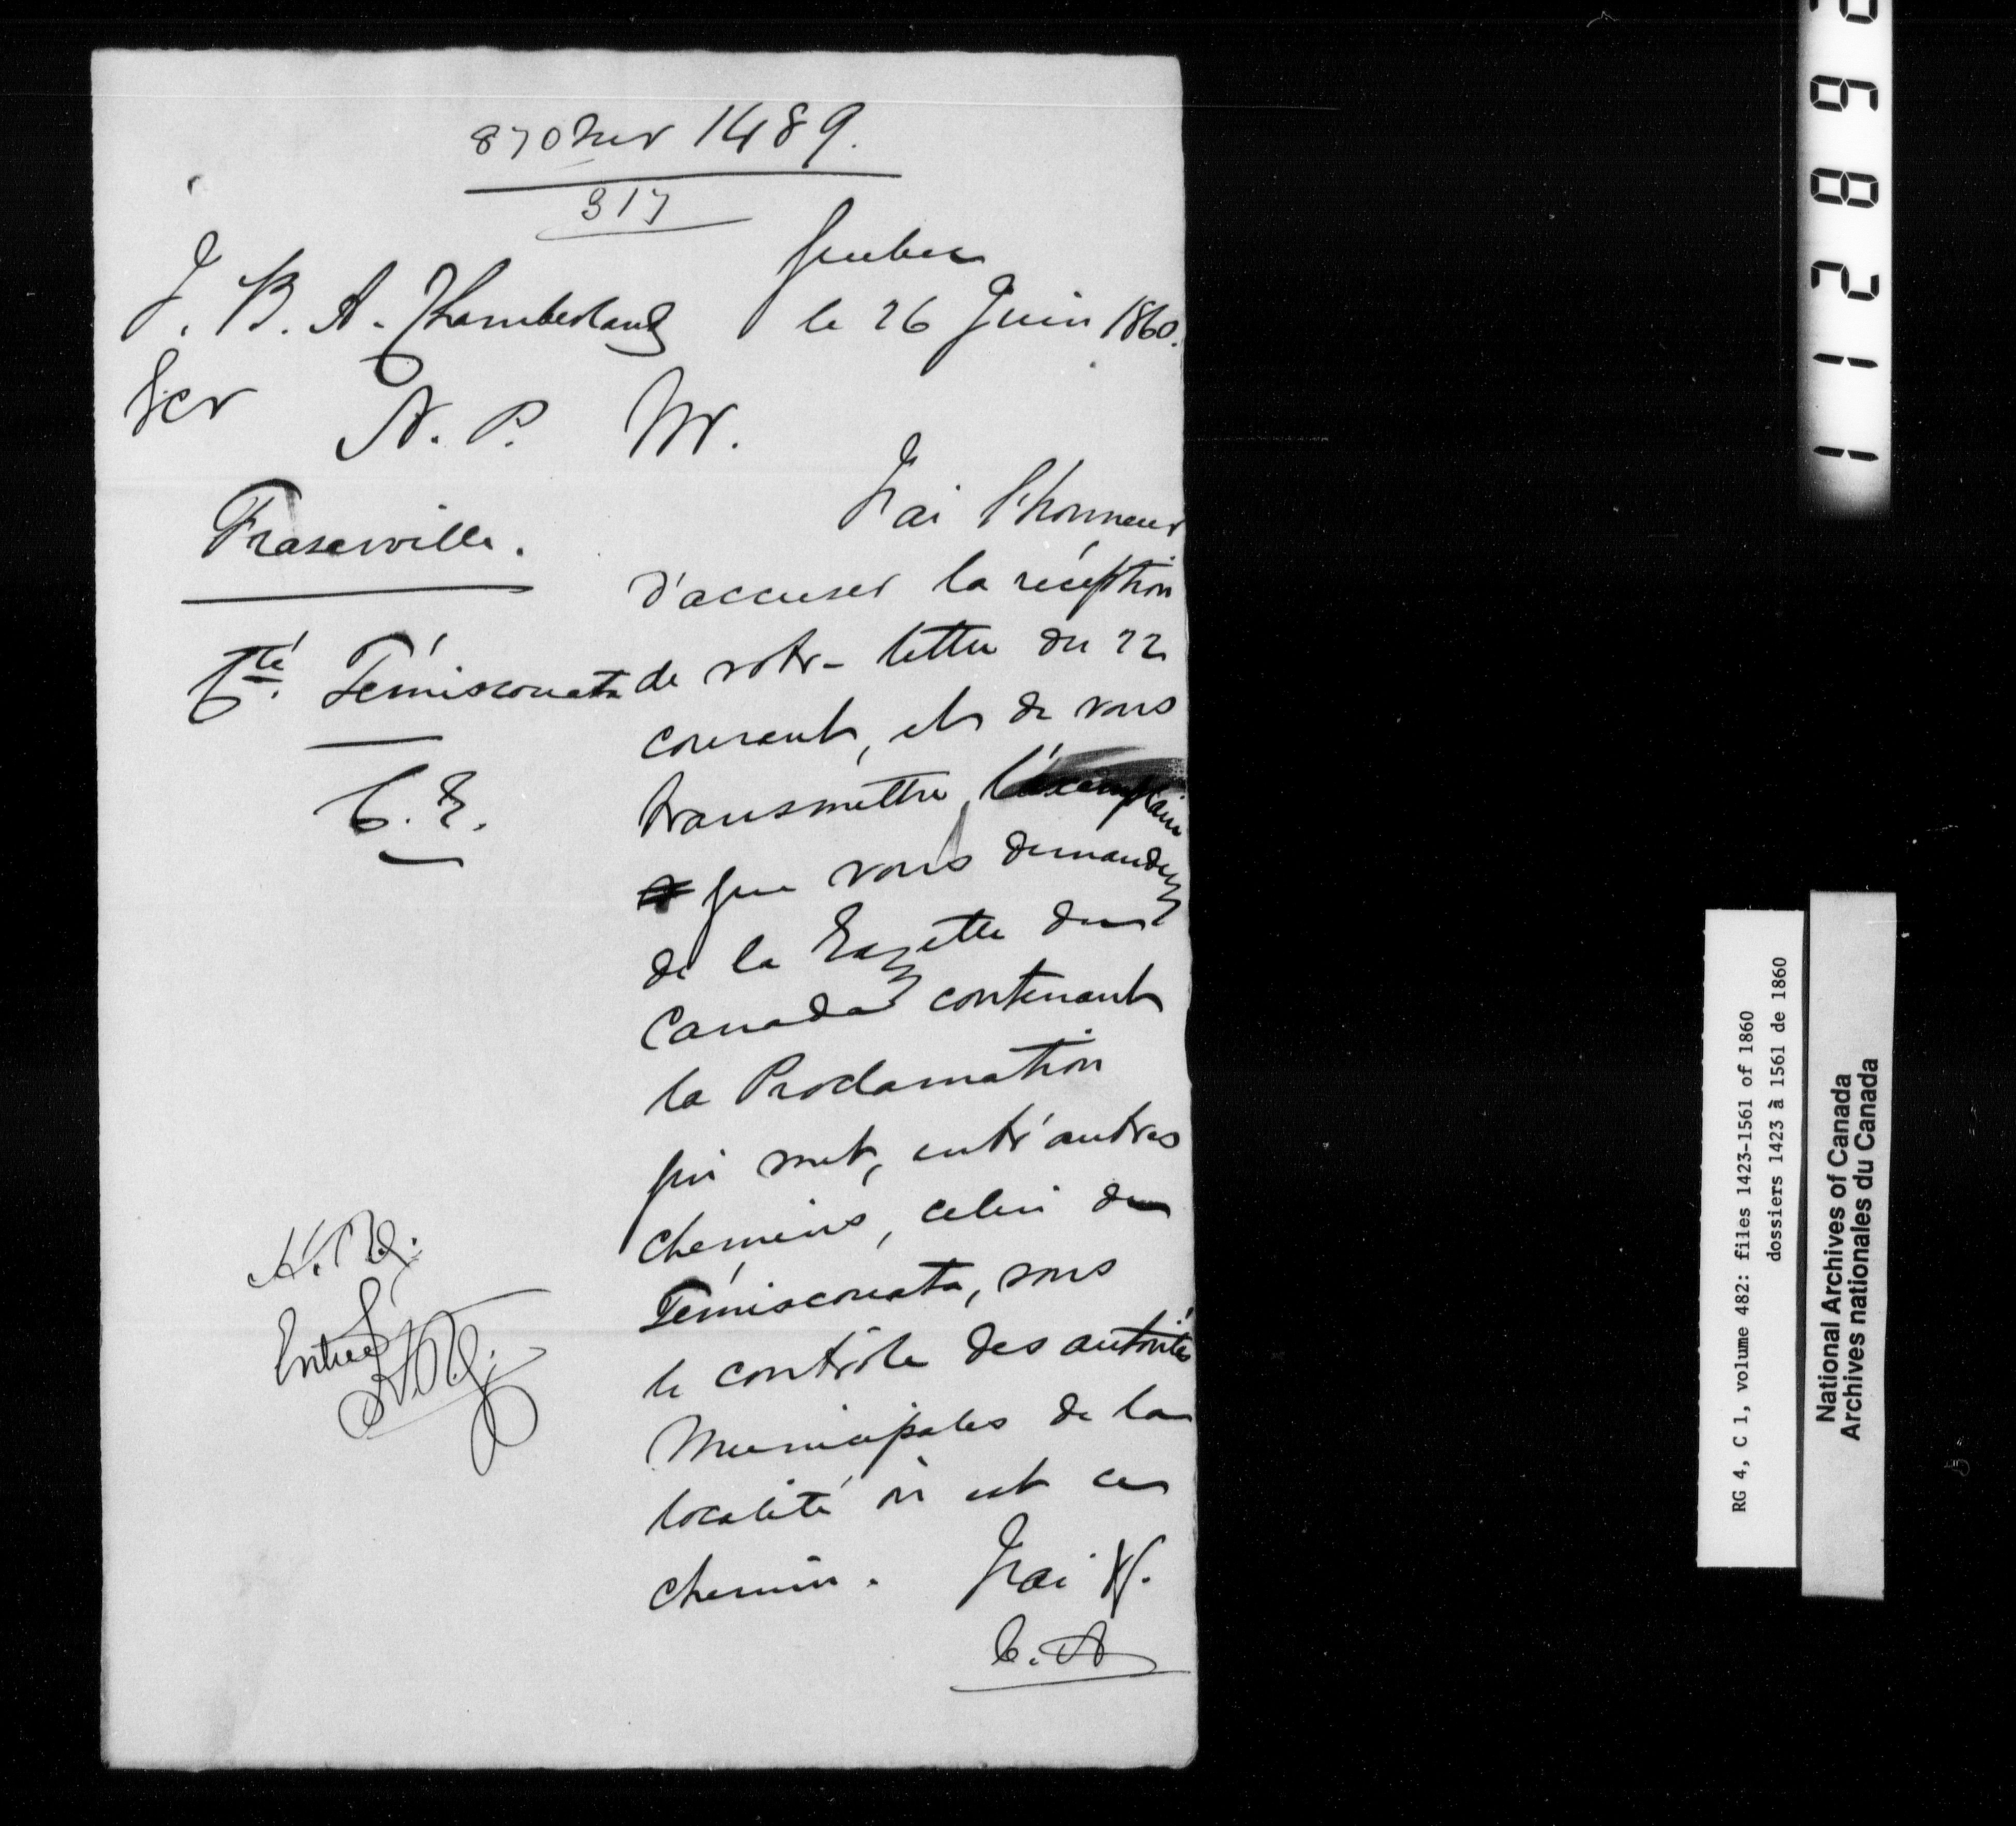 870 1489.
317
Quebec
J. B. A. Chamberland
le 26 Juin 1860.
Ecr N. P.
M.
Fraserville.
J'ai l'honneur
d'accuser la réception
Cté. Témiscouata
de votre lettre du 22
courant, et de vous
C. E.
transmettre, l'exemplaire
que vous demandez
de la Gazette du
Canada contenant
la Proclamation
qui met, entr'autres
chemins, celui de
Témiscouata, sous
le contrôle des autorités
Municipales de la
localité où est ce
chemin. J'ai &.
C. A
Entrée
112892
RG 4, C 1, volume 482: files 1423-1561 of 1860
dossiers 1423 à 1561 de 1860
National Archives of Canada
Archives nationales du Canada